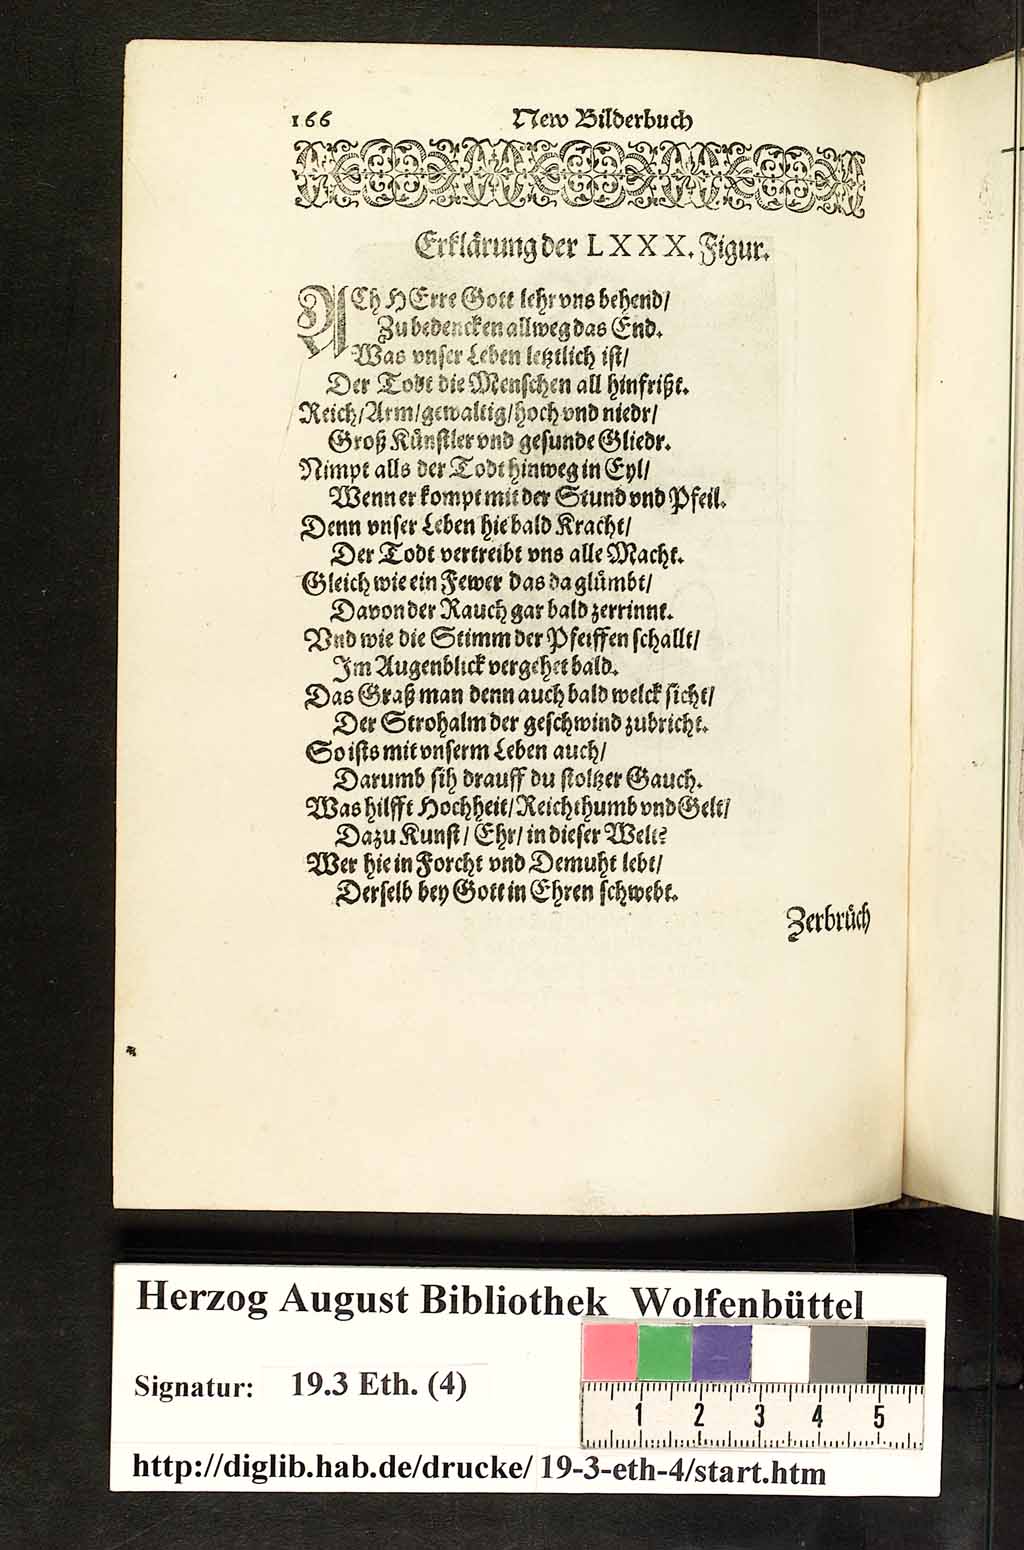 166 New Bilderbuch
Erklärung der LXXX. Figur.
ACh HErre Gott lehr vns behend/
Zu bedencken allweg das End.
Was vnser Leben letztlich ist/
Der Todt die Menschen all hinfrißt.
Reich/Arm/gewaltig/hoch vnd niedr/
Groß Künstler vnd gesunde Gliedr.
Nimpt alls der Todt hinweg in Eyl/
Wenn er kompt mit der Stund vnd Pfeil.
Denn vnser Leben hie bald Kracht/
Der Todt vertreibt vns alle Macht.
Gleich wie ein Fewer das da glümbt/
Davon der Rauch gar bald zerrinnt.
Vnd wie die Stimm der Pfeiffen schallt/
Im Augenblick vergehet bald.
Das Graß man denn auch bald welck sicht/
Der Strohalm der geschwind zubricht.
So ists mit vnserm Leben auch/
Darumb sih drauff du stoltzer Gauch.
Was hilfft Hochheit/Reichthumb vnd Gelt/
Dazu Kunst/ Ehr/ in dieser Welt?
Wer hie in Forcht vnd Demuht lebt/
Derselb bey Gott in Ehren schwebt.
Zerbrüch
Herzog August Bibliothek Wolfenbüttel
Signatur: 19.3 Eth. (4)
1 2 3 4 5
http://diglib.hab.de/drucke/ 19-3-eth-4/start.htm